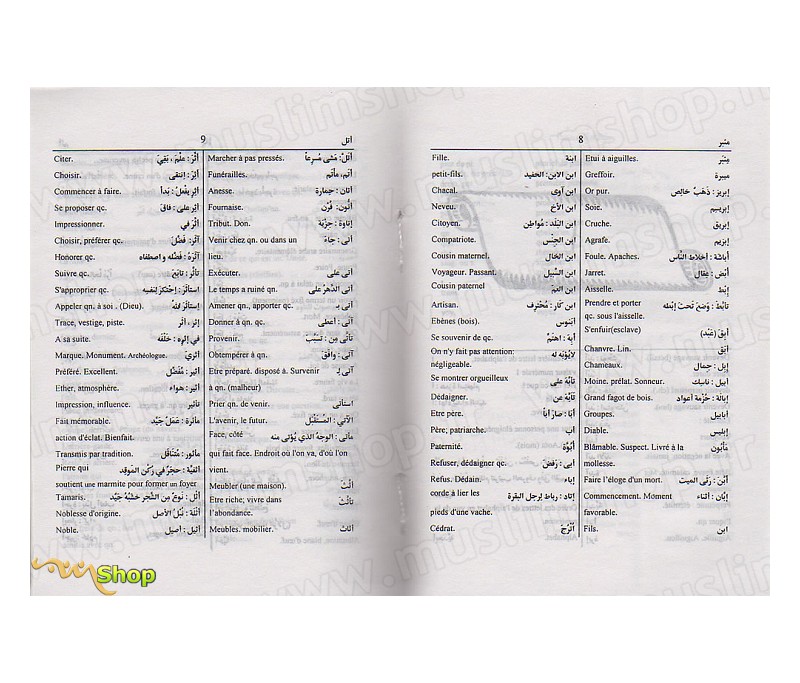 8 مئبر
Etui à aiguilles. مئبر
Greffoir. ميبرة
Or pur. إبريز : ذهب خالص
Soie. إبريسم
Cruche. إبريق
Agrafe. إبزيم
Foule. Apaches. أباشة : أخلاط الناس
Jarret. أبض : عقال
Aisselle. إبط
Prendre et porter تأبط : وضع تحت إبطه
qc. sous l'aisselle.
S'enfuir(esclave) أبق (عبد)
Chanvre. Lin. أبق
Chameaux. إبل : جمال
Moine. prélat. Sonneur. أبيل : ناسك
Grand fagot de bois. إبالة : حزمة أعواد
Groupes. أبابيل
Diable. إبليس
Blâmable. Suspect. Livré à la مأبون
mollesse.
Faire l'éloge d'un mort. أبن : رثى الميت
Commencement. Moment إبان : أثناء
favorable.
Fils. ابن
Fille. ابنة
petit-fils. ابن الابن : الحفيد
Chacal. ابن آوى
Neveu. ابن الأخ
Citoyen. ابن البلد : مواطن
Compatriote. ابن الجنس
Cousin maternel ابن الخال
Voyageur. Passant. ابن السبيل
Cousin paternel ابن العم
Artisan. ابن كار : محترف
Ebènes (bois). ابنوس
Se souvenir de qc. أبه : اهتم
On n'y fait pas attention: لا يؤبه له
négligeable.
Se montrer orgueilleux تأبه على
Dédaigner. تأبه عن
Etre père. أبا : صار أبا
Père, patriarche. أب
Paternité. أبوة
Refuser, dédaigner qc. أبى : رفض
Refus. Dédain. إباء
corde à lier les إباد : رباط لرجل البقرة
pieds d'une vache.
Cédrat. أترج
9 أثل
Marcher à pas pressés. أتل : مشى مسرعا
Funérailles. أتم، مأتم
Anesse. أتان : حمارة
Fournaise. أتون : فرن
Tribut. Don. إتاوة : جزية
Venir chez qn. ou dans un أتى : جاء
lieu.
Exécuter. أتى على
Le temps a ruiné qn. أتى الدهر على
Amener qn, apporter qc. أتى بـ
Donner à qn. qc. آتى : أعطى
Provenir. تأتى من : تسبب
Obtempérer à qn. آتى : وافق
Etre préparé. disposé à. Survenir أتى بـ
à qn. (malheur)
Prier qn. de venir. استأتى
L'avenir, le futur. الآتي : المستقبل
Face, côté مأتى : الوجه الذي يؤتى منه
qui fait face. Endroit où l'on va, d'où l'on
vient.
Meubler (une maison). أثث
Etre riche; vivre dans تأثث
l'abondance.
Meubles. mobilier. أثاث
Citer. أثر : علم ، بقي
Choisir. آثر : انتقى
Commencer à faire. أثر يفعل : بدأ
Se proposer qc. أثر على : فاق
Impressionner. أثر في
Choisir, préférer qc. آثر : فضل
Honorer qc. آثر : فضله و اصطفاه
Suivre qc. تأثر : تابع
S'approprier qc. إستأثر : إحتكر لنفسه
Appeler qn. à soi . (Dieu). إستأثر الله
Trace, vestige, piste. إثر ، أثر
A sa suite. في إثره : خلفه
Marque. Monument. Archéologue. أثري
Préféré. Excellent. أثير : مفضل
Ether, atmosphère. أثير : هواء
Impression, influence. تأثير
Fait mémorable. مأثرة : عمل جيد
action d'éclat. Bienfait.
Transmis par tradition. مأثور : متناقل
Pierre qui أثفية : حجر في ركن الموقد
soutient une marmite pour former un foyer
Tamaris. أثل : نوع من الشجر خشبه جيد
Noblesse d'origine. أثلة : نبل الأصل
Noble. أثيل : أصيل
Shop
www.muslimshop.fr